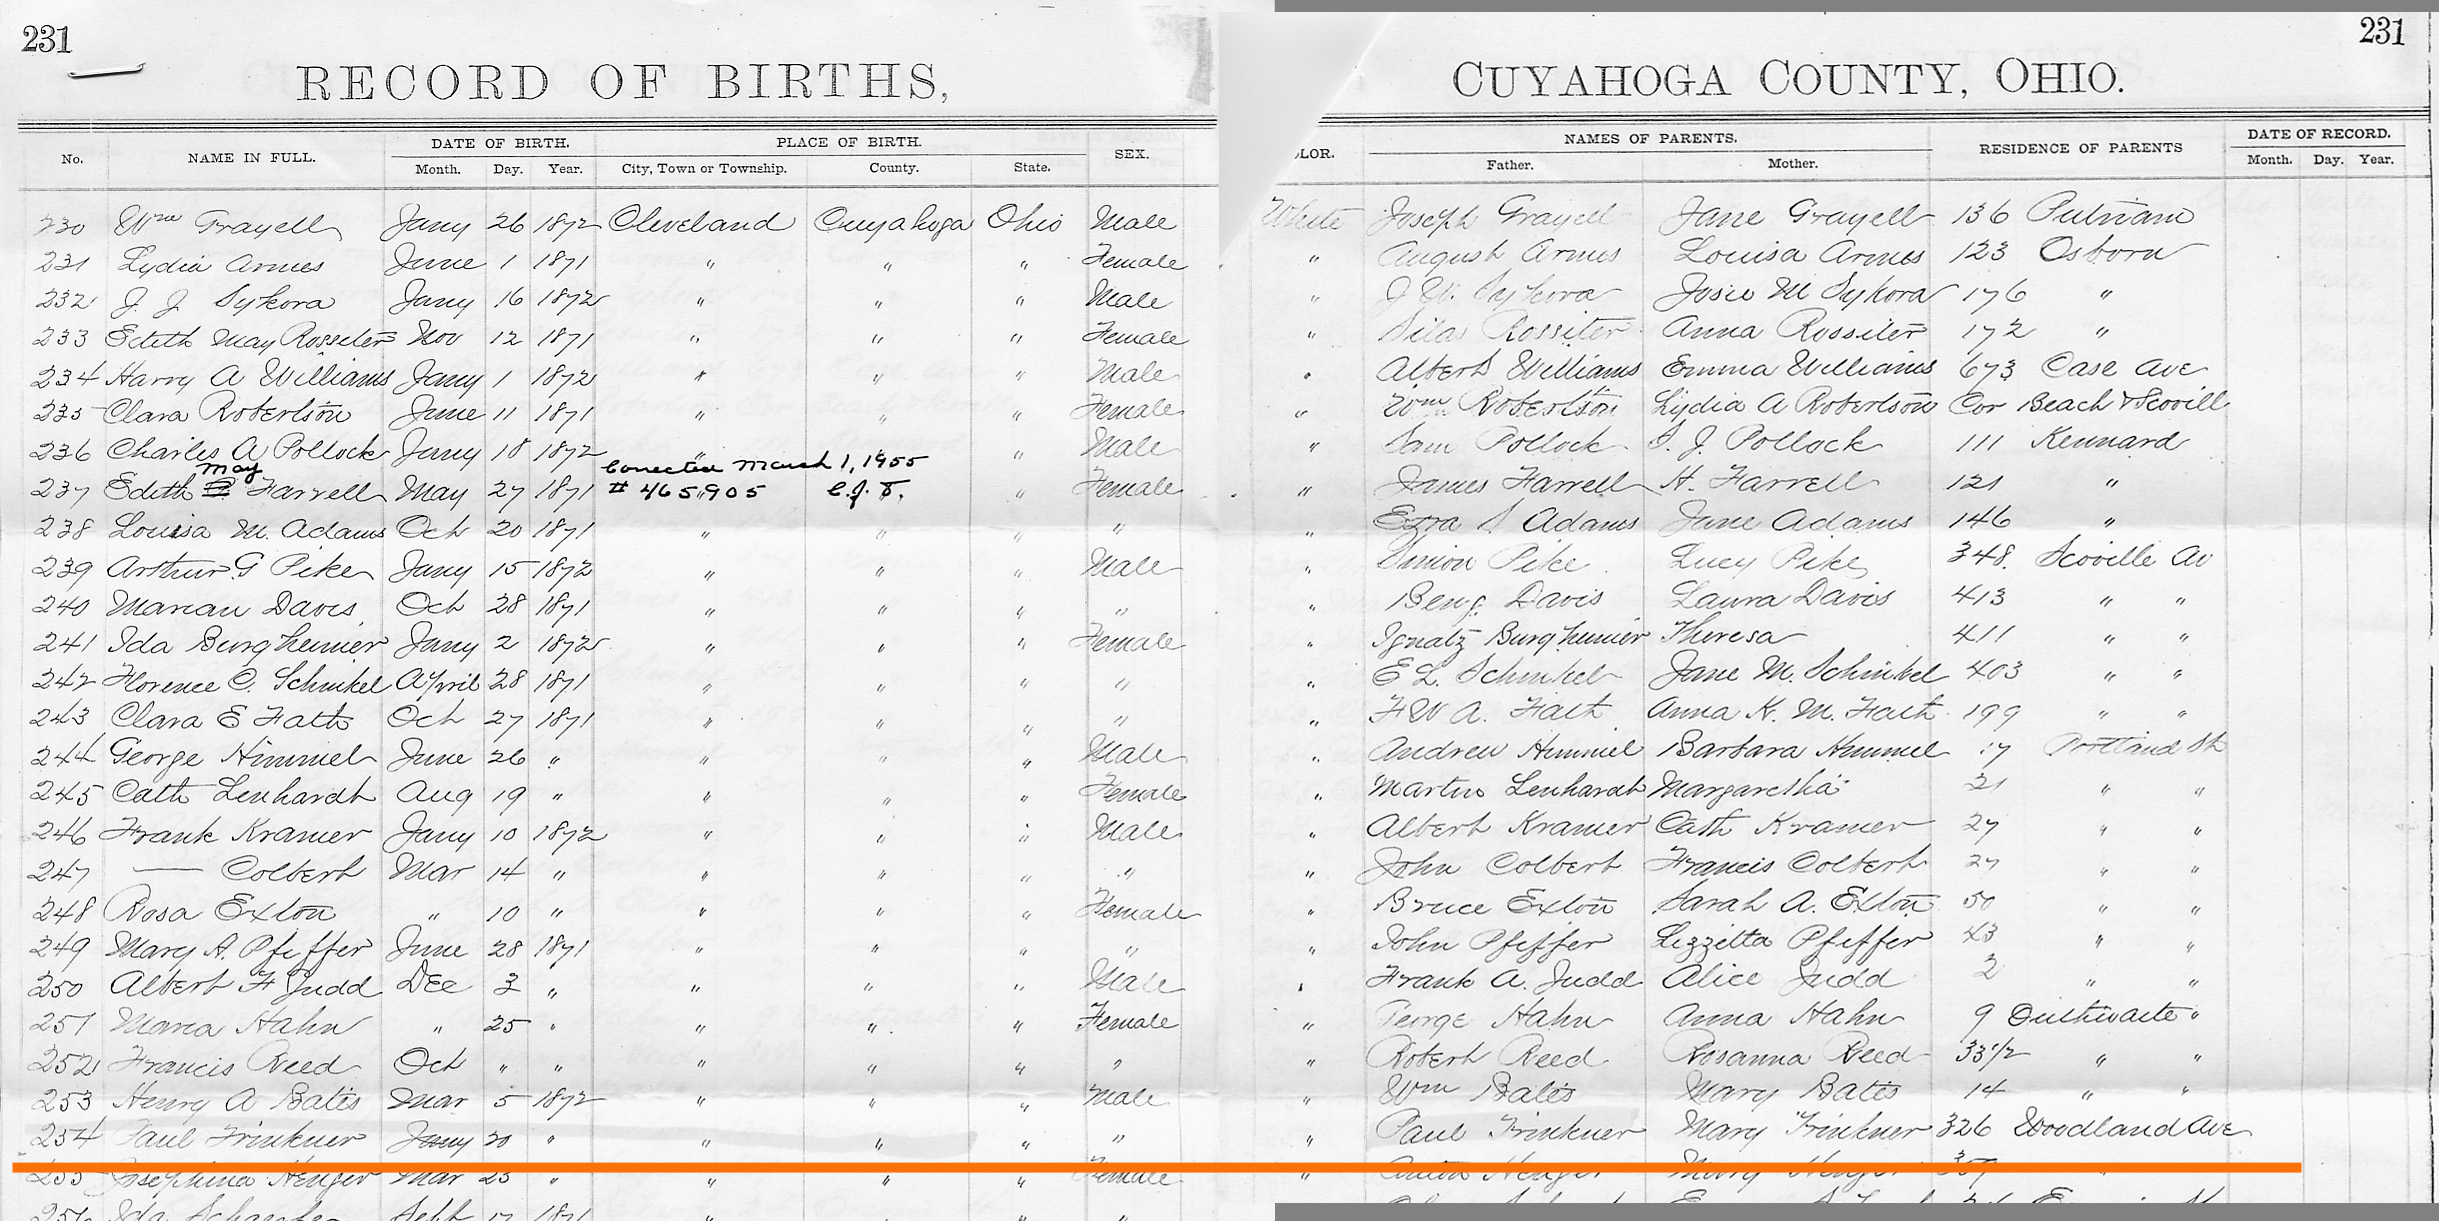 231 231
RECORD OF BIRTHS, CUYAHOGA COUNTY, OHIO.
No. NAME IN FULL. DATE OF BIRTH. PLACE OF BIRTH. SEX. LOR. NAMES OF PARENTS. RESIDENCE OF PARENTS DATE OF RECORD.
Month. Day. Year. City, Town or Township. County. State. Father. Mother. Month. Day. Year.
230 Wm Grayell Jany 26 1872 Cleveland Cuyahoga Ohio Male White Joseph Grayell Jane Grayell 136 Putnam
231 Lydia Armes June 1 1871 " " " Female " August Armes Louisa Armes 123 Osborn
232 J. J. Sykora Jany 16 1872 " " " Male " J W. Sykora Josie M Sykora 176 "
233 Edith May Rossiter Nov 12 1871 " " " Female " Silas Rossiter Anna Rossiter 172 "
234 Harry A Williams Jany 1 1872 " " " Male " Albert Williams Emma Williams 673 Case Ave
235 Clara Robertson June 11 1871 " " " Female " Wm Robertson Lydia A Robertson Cor Beach & Scovill
236 Charles A Pollock Jany 18 1872 " " Male " Sam Pollock S. J. Pollock 111 Kennard
May Corrected March 1, 1955
237 Edith Farrell May 27 1871 # 465905 C.J.T. " Female " James Farrell H. Farrell 121 "
238 Louisa M. Adams Oct 20 1871 " " " " " Ezra S Adams Jane Adams 146 "
239 Arthur G Pike Jany 15 1872 " " " Male " Simon Pike Lucy Pike 348. Scoville Av
240 Marian Davis Oct 28 1871 " " " " " Benj. Davis Laura Davis 413 " "
241 Ida Burgheimer Jany 2 1872 " " " Female " Ignatz Burgheimer Theresa 411 " "
242 Florence C. Schinkel April 28 1871 " " " " " E L. Schinkel Jane M. Schinkel 403 " "
243 Clara E Faith Oct 27 1871 " " " " " F W A. Faith Anna K. M. Faith 199 " "
244 George Himmel June 26 " " " " Male " Andrew Himmel Barbara Himmel 17 Portland St
245 Cath Lenhardt Aug 19 " " " " Female " Martin Lenhardt Margaretha 21 " "
246 Frank Kramer Jany 10 1872 " " " Male " Albert Kramer Cath Kramer 27 " "
247 — Colbert Mar 14 " " " " " " John Colbert Francis Colbert 27 " "
248 Rosa Exton " 10 " " " " Female " Bruce Exton Sarah A. Exton 50 " "
249 Mary A. Pfeffer June 28 1871 " " " " " John Pfeffer Lizzetta Pfeffer 43 " "
250 Albert F Judd Dec 3 " " " " Male " Frank A. Judd Alice Judd 2 " "
251 Maria Hahn " 25 " " " " Female " George Hahn Anna Hahn 9 Outhwaite "
252 Francis Reed Oct " " " " " " " Robert Reed Rosanna Reed 33 1/2 " "
253 Henry A Bates Mar 5 1872 " " " Male " Wm Bates Mary Bates 14 " "
254 Paul Frinkner Jany 20 " " " " " " Paul Frinkner Mary Frinkner 326 Woodland Ave
255 Josephina Henger Mar 23 " " " " Female " Anton Henger Mary Henger 359 "
256 Ida Sept 17 1871 " " "